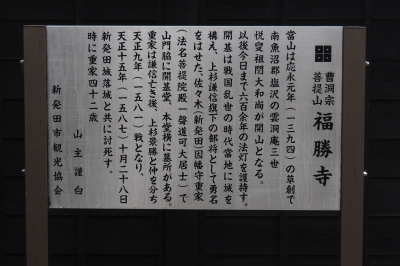 曹洞宗
菩提山
福勝寺
當山は応永元年(一三九四)の草創で
南魚沼郡塩沢の雲洞庵三世
悦叟祖誾大和尚が開山となる。
以後今日まで六百余年の法灯を護持す。
開基は戦国乱世の時代當地に城を
構え、上杉謙信旗下の部将として勇名
をはせた、佐々木(新発田)因幡守重家
(法名菩提院殿一聲道可大居士)で
山門脇に開基堂、本堂横に墓所がある。
重家は謙信亡き後、上杉景勝と仲を分ち
天正九年(一五八一)戦となり、
天正十五年(一五八七)十月二十八日
新発田城落城と共に討死す。
時に重家四十二歳
山主 謹白
新発田市観光協会